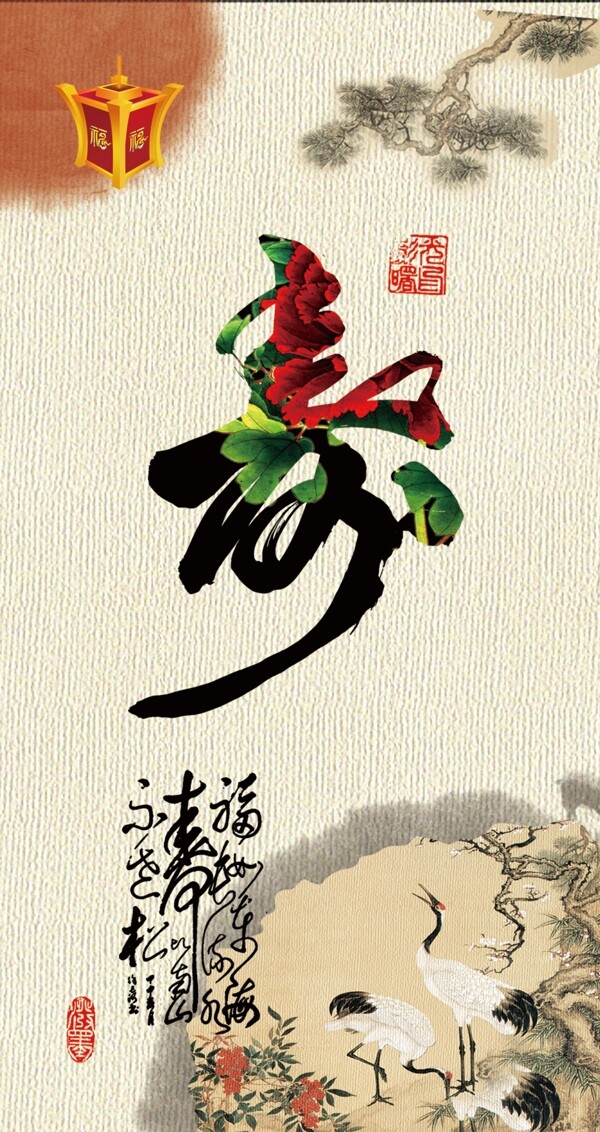 福 福
寿
福如东海长流水
寿比南山不老松